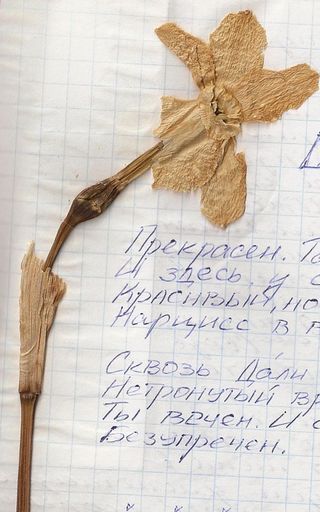 Прекрасен. Т
И здесь, у
Красивый, но
Нарцисс в
Сквозь Дали
Нетронутый вр
Ты вечен. И с
Безупречен.